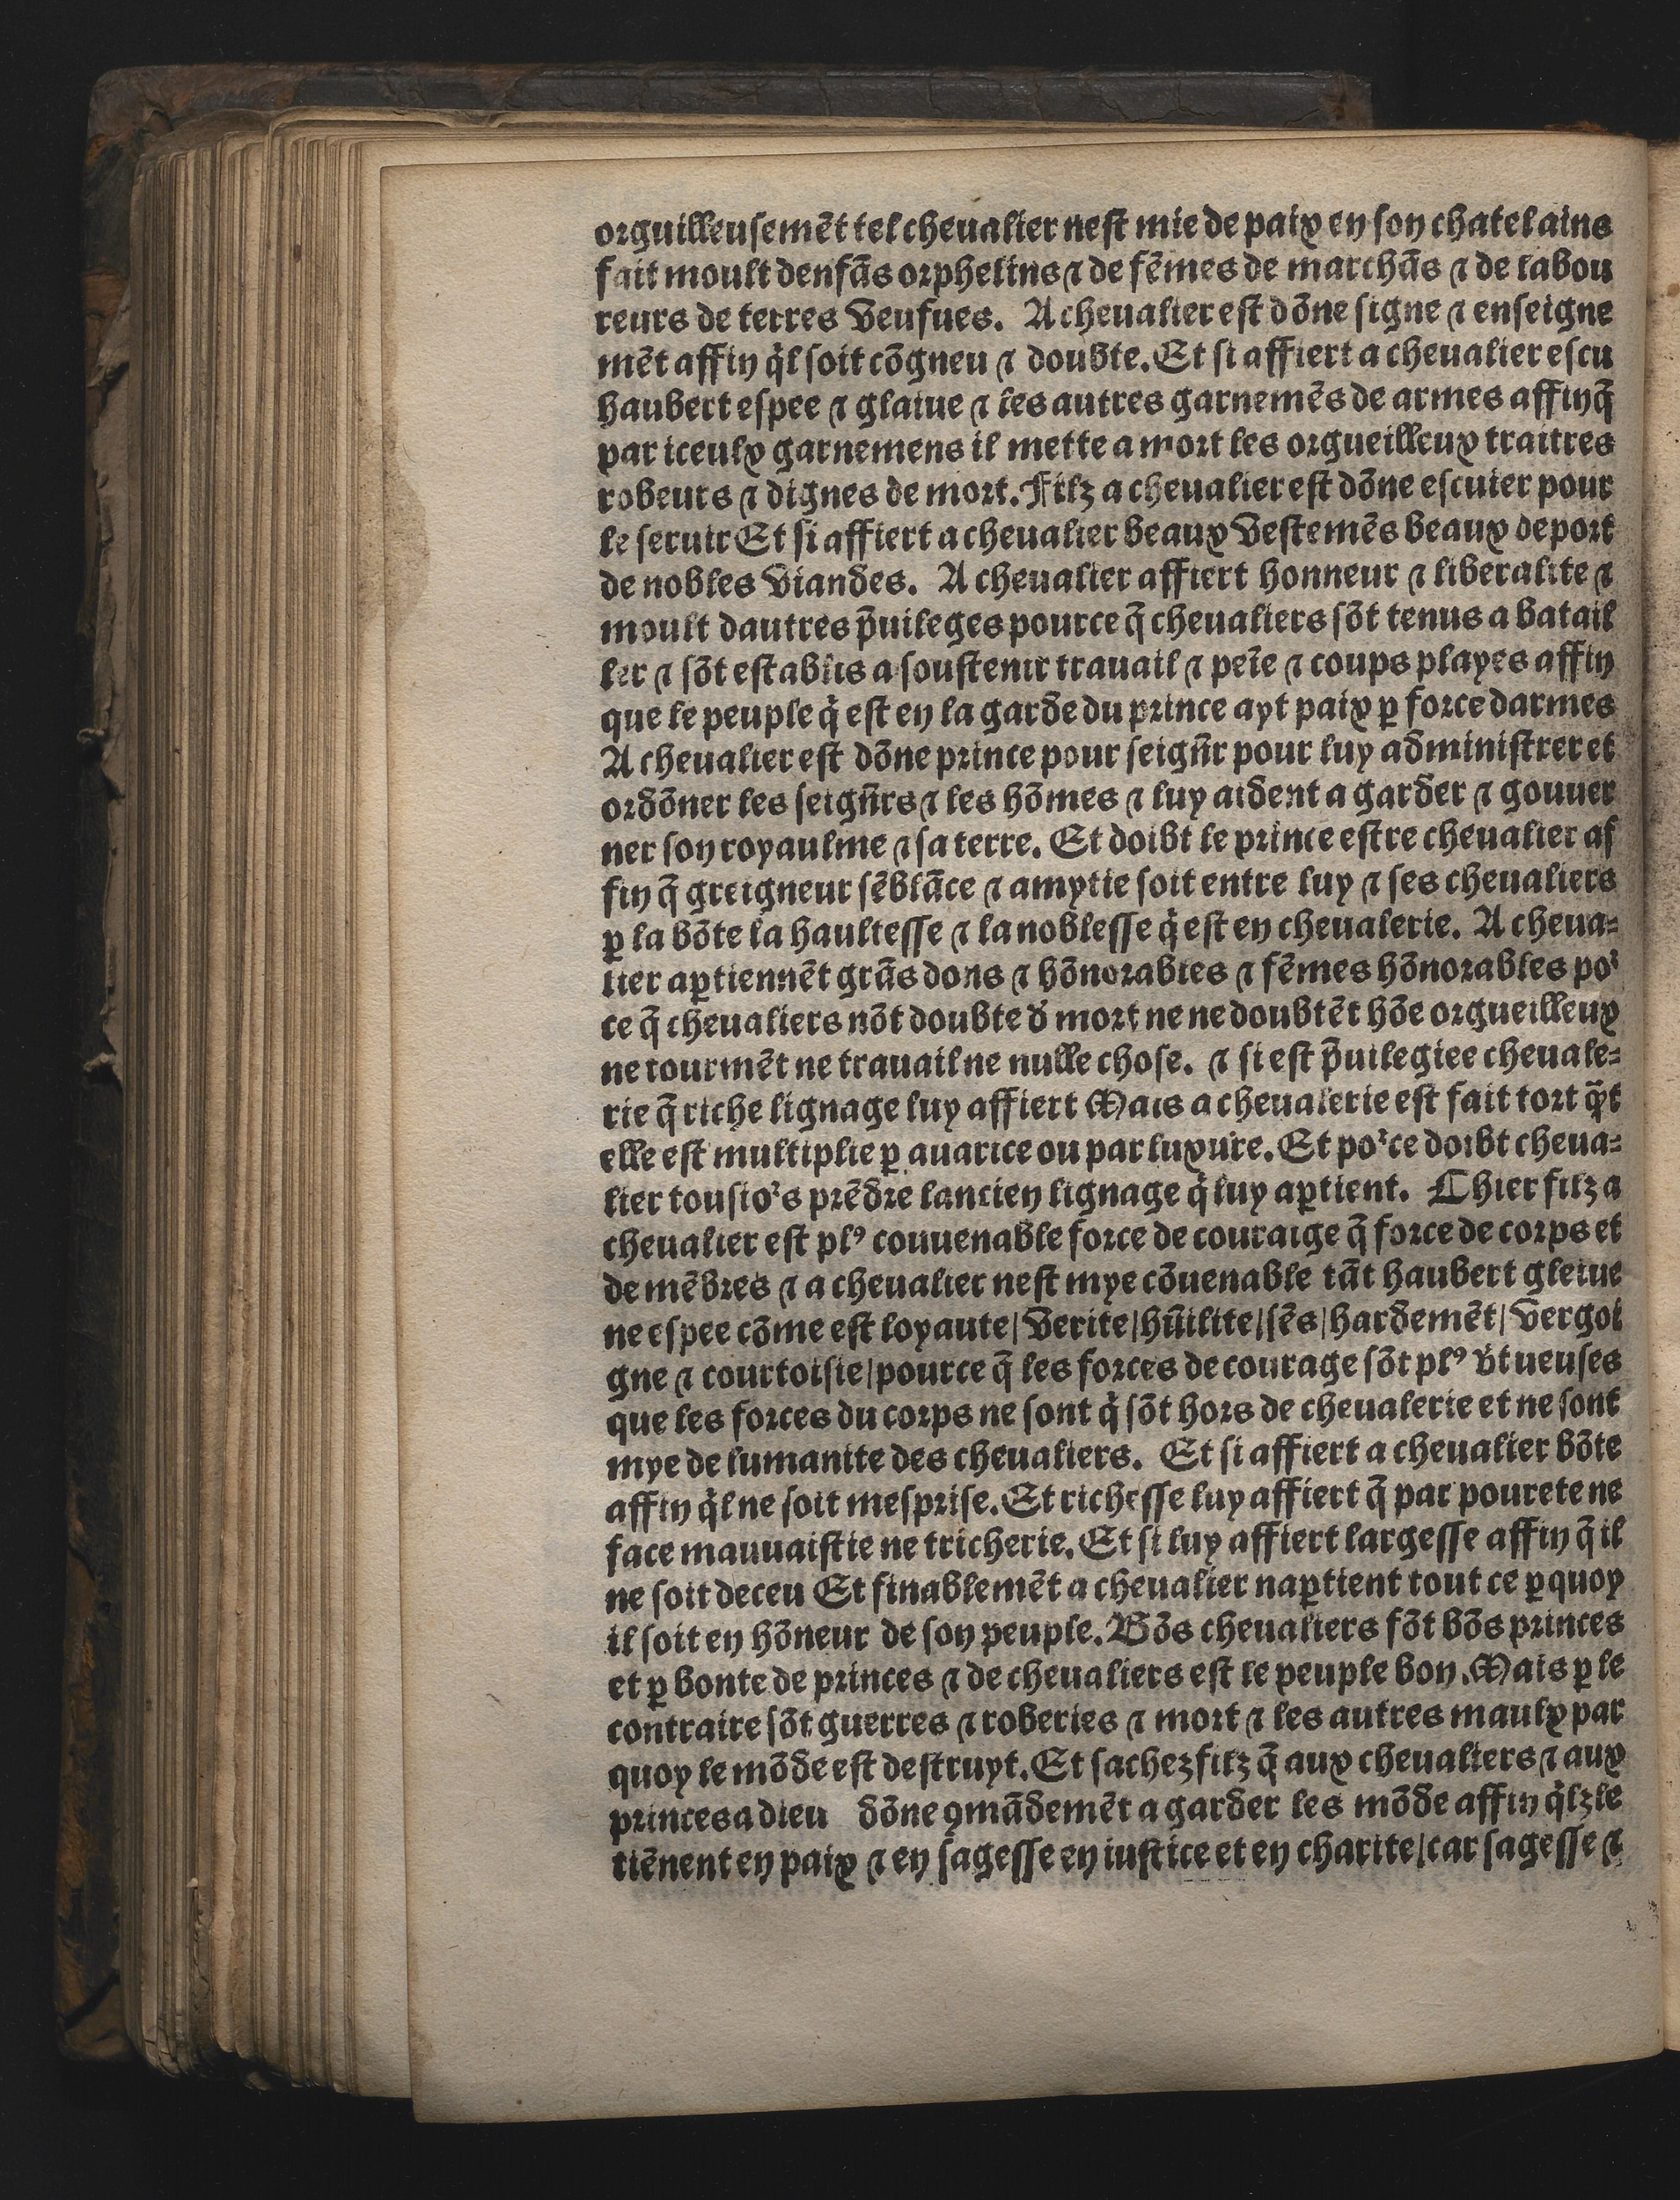 orguilleusemēt tel cheualier nest mie de paix en son chatel ains
fait moult denfās orphelins ⁊ de fēmes de marchās ⁊ de labou
reurs de terres veufues. A cheualier est dōne signe ⁊ enseigne
mēt affin q̇l soit cōgneu ⁊ doubte. Et si affiert a cheualier escu
haubert espee ⁊ glaiue ⁊ les autres garnemēs de armes affin q̄
par iceulx garnemens il mette a mort les orgueilleux traitres
robeurs ⁊ dignes de mort. Filz a cheualier est dōne escuier pour
le seruir Et si affiert a cheualier beaux vestemēs beaux deport
de nobles viandes. A cheualier affiert honneur ⁊ liberalite ⁊
moult dautres p̄uileges pource q̄ cheualiers sōt tenus a batail
ler ⁊ sōt establis a soustenir trauail ⁊ peīe ⁊ coups playes affin
que le peuple q̇ est en la garde du prince ayt paix ꝑ force darmes
A cheualier est dōne prince pour seign̄r pour luy administrer et
ordōner les seign̄rs ⁊ les hōmes ⁊ luy aident a garder ⁊ gouuer
ner son royaulme ⁊ sa terre. Et doibt le prince estre cheualier af
fin q̄ greigneur sēblāce ⁊ amytie soit entre luy ⁊ ses cheualiers
ꝑ la bōte la haultesse ⁊ la noblesse q̇ est en cheualerie. A cheua-
lier aꝑtiennēt grās dons ⁊ hōnorables ⁊ fēmes hōnorables poꝛ
ce q̄ cheualiers nōt doubte d̾ mort ne ne doubtēt hōe orgueilleux
ne tourmēt ne trauail ne nulle chose. ⁊ si est p̄uilegiee cheuale-
rie q̄ riche lignage luy affiert Mais a cheualerie est fait tort q̄t
elle est multiplie ꝑ auarice ou par luxure. Et poꝛce doibt cheua-
lier tousioꝛs prēdre lancien lignage q̇ luy aꝑtient. Chier filz a
cheualier est plꝰ couuenable force de couraige q̄ force de corps et
de mēbres ⁊ a cheualier nest mye cōuenable tāt haubert gleiue
ne espee cōme est loyaute/verite/hūilite/sēs/hardemēt/vergoi
gne ⁊ courtoisie/pource q̄ les forces de courage sōt plꝰ v̾tueuses
que les forces du corps ne sont q̇ sōt hors de cheualerie et ne sont
mye de lumanite des cheualiers. Et si affiert a cheualier bōte
affin q̇l ne soit mesprise. Et richesse luy affiert q̄ par pourete ne
face mauuaistie ne tricherie. Et si luy affiert largesse affin q̄ il
ne soit deceu Et finablemēt a cheualier naꝑtient tout ce ꝑquoy
il soit en hōneur de son peuple. Bōs cheualiers fōt bōs princes
et ꝑ bonte de princes ⁊ de cheualiers est le peuple bon. Mais ꝑ le
contraire sōt guerres ⁊ roberies ⁊ mort ⁊ les autres maulx par
quoy le mōde est destruyt. Et sachez filz q̄ aux cheualiers ⁊ aux
princes a dieu dōne ꝯmādemēt a garder les mōde affin q̇lz le
tiēnent en paix ⁊ en sagesse en iustice et en charite/car sagesse ⁊